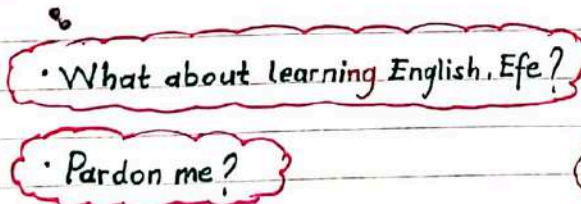 · What about learning English, Efe?
· Pardon me?